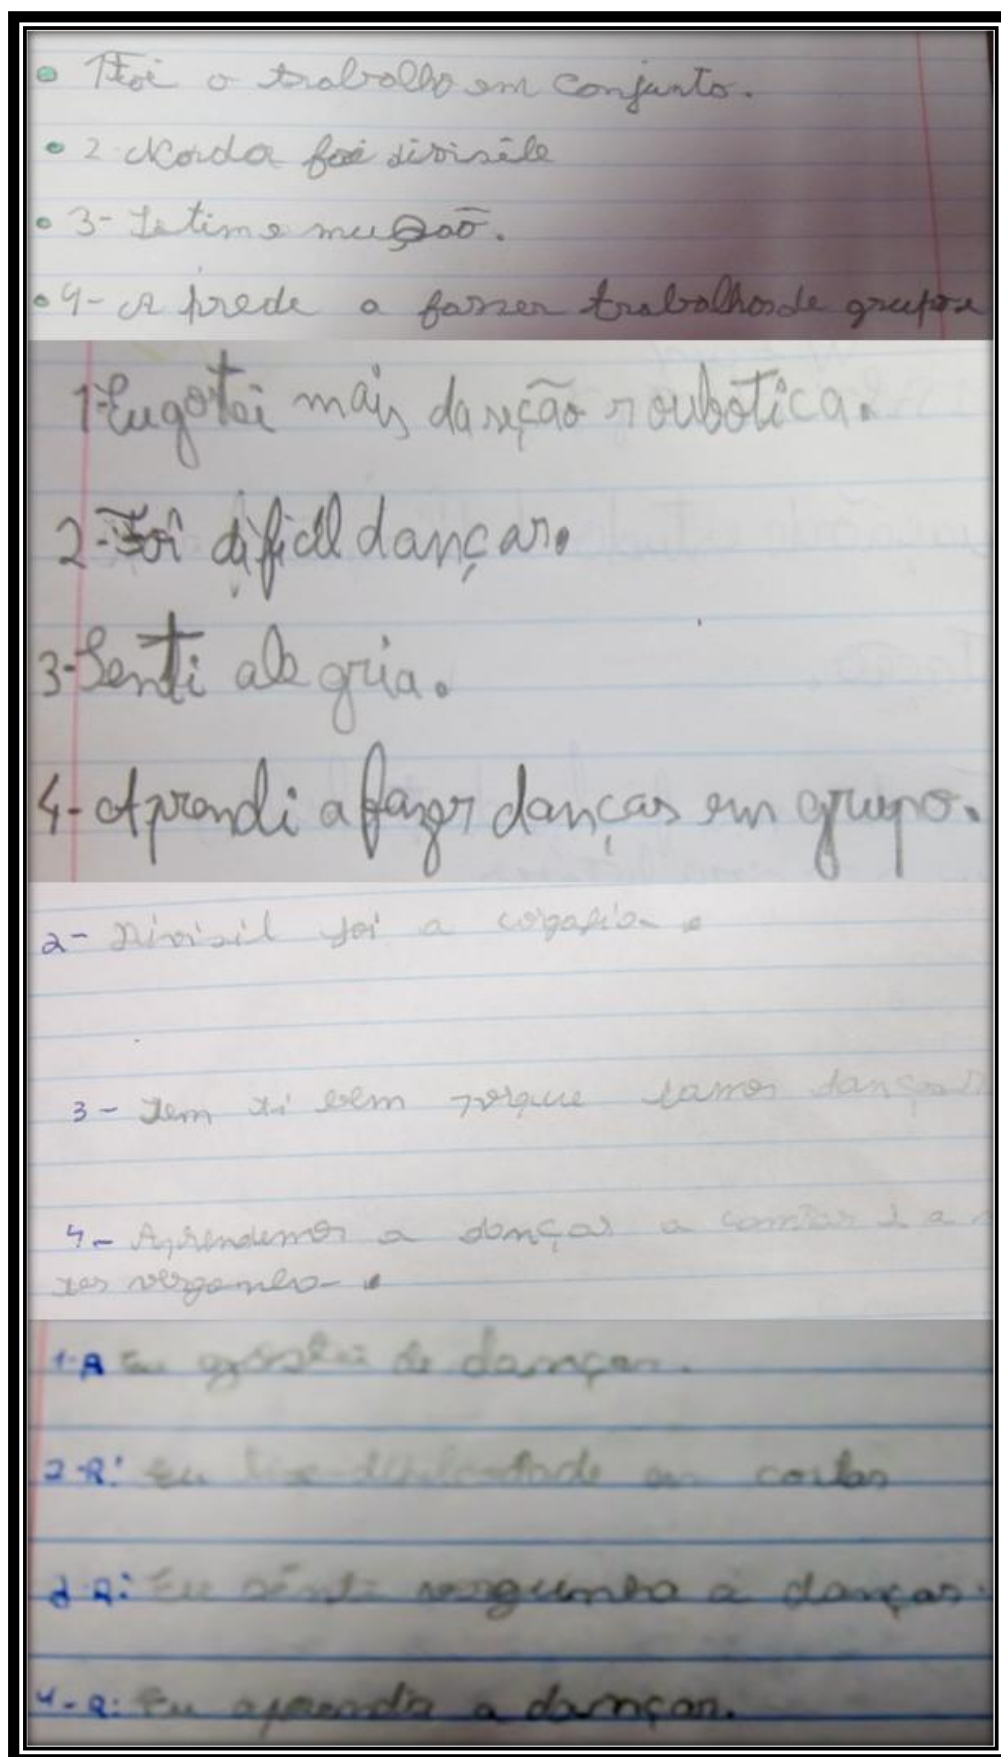 1 Foi o trabalho em conjunto.
2- Nada foi divisile
3- Setime mução.
4- A prede a fazzer trabalhos de grupo
1-Eu gotei mais da seção roubotica.
2-Foi dificil dançar.
3-Senti ale gria.
4-Aprendi a fazer danças em grupo.
2- Divisil foi a cogafia.
3- Sem ti bem porque vamos dançar
4- Aprendemos a dançar a contar e a
ter vergonha.
1-R Eu gostei de dançar.
2-R: Eu tive dificuldade em
3-R: Eu senti vergunha a dançar.
4-R: Eu aprendi a dançar.